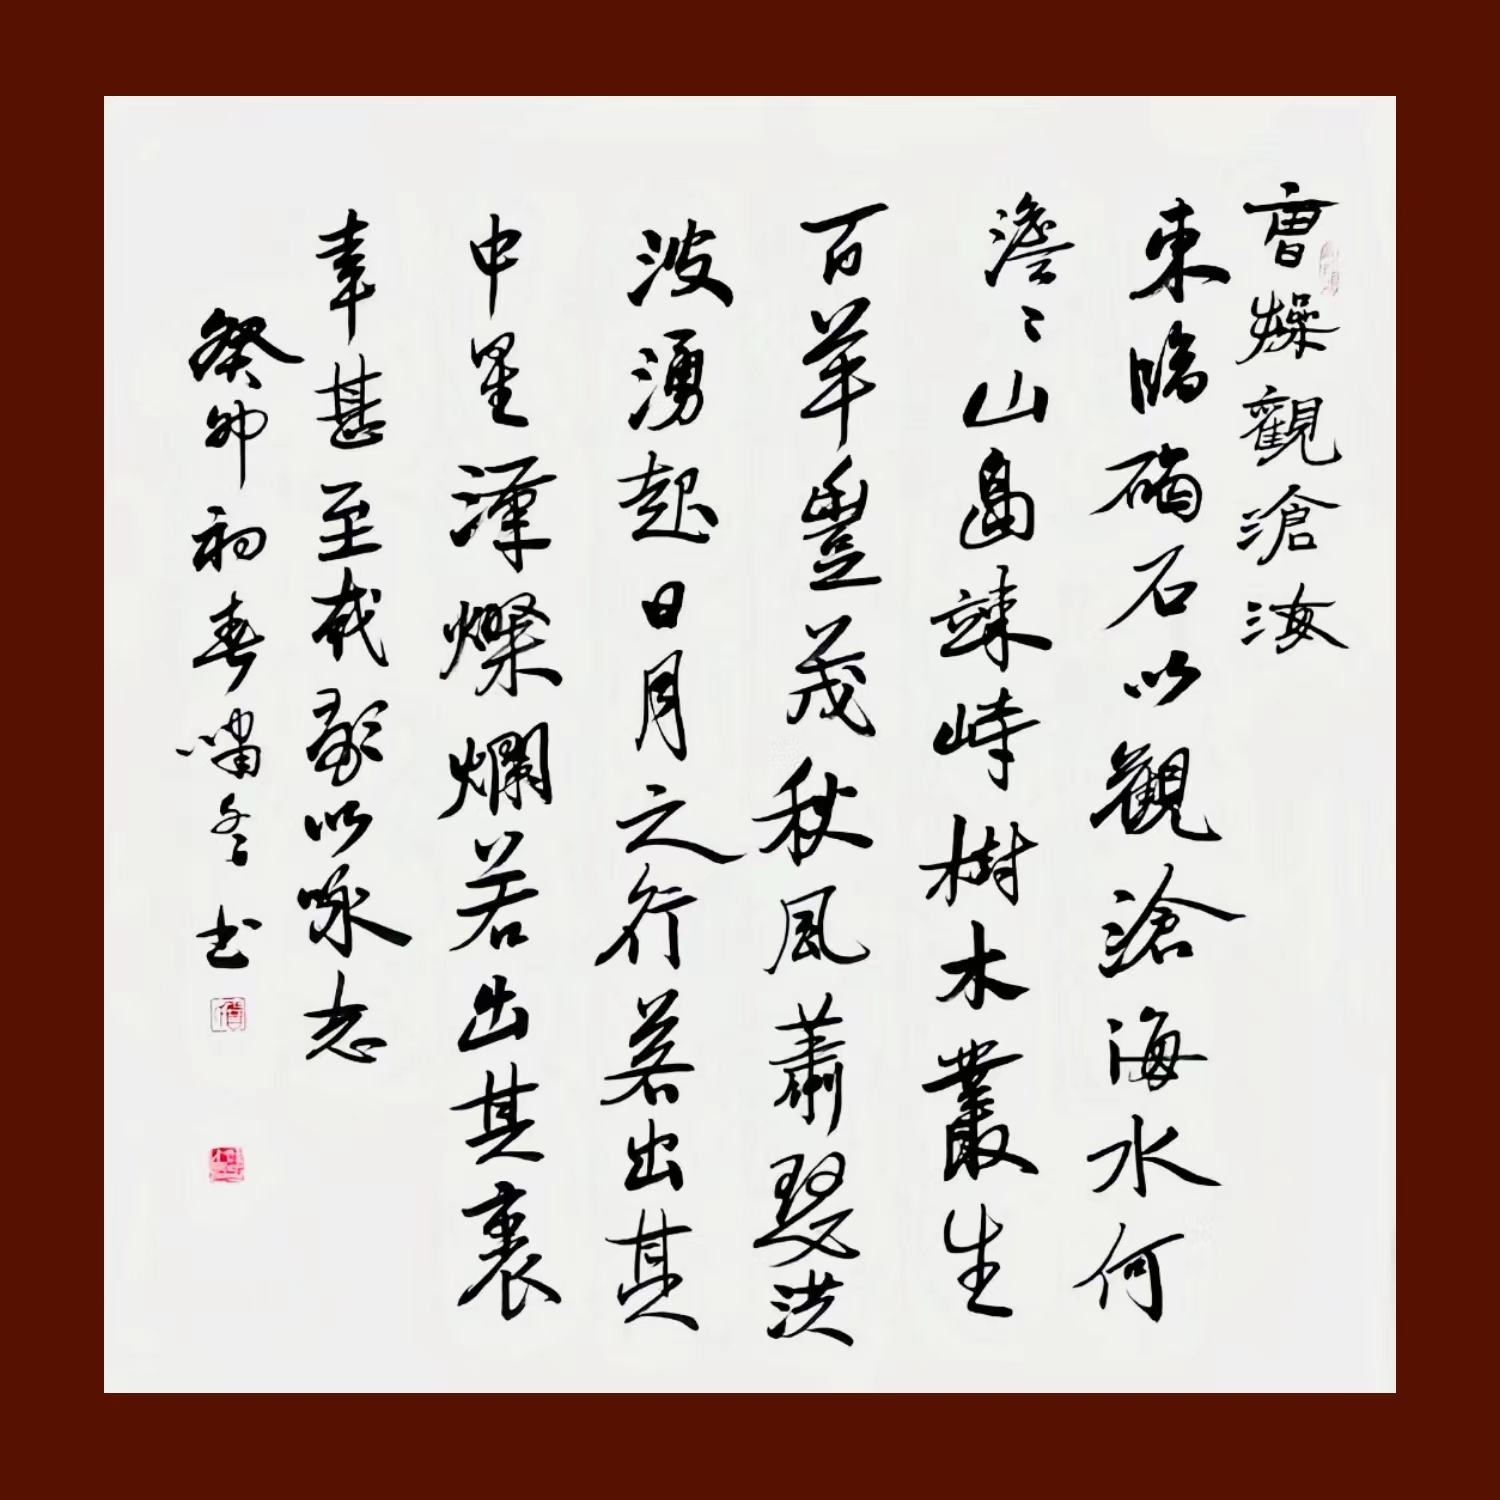 曹操觀滄海
東臨碣石以觀滄海水何
澹〻山島竦峙樹木叢生
百草豐茂秋風蕭瑟洪
波湧起日月之行若出其
中星漢燦爛若出其裏
幸甚至哉歌以咏志
癸卯初春嘯冬書